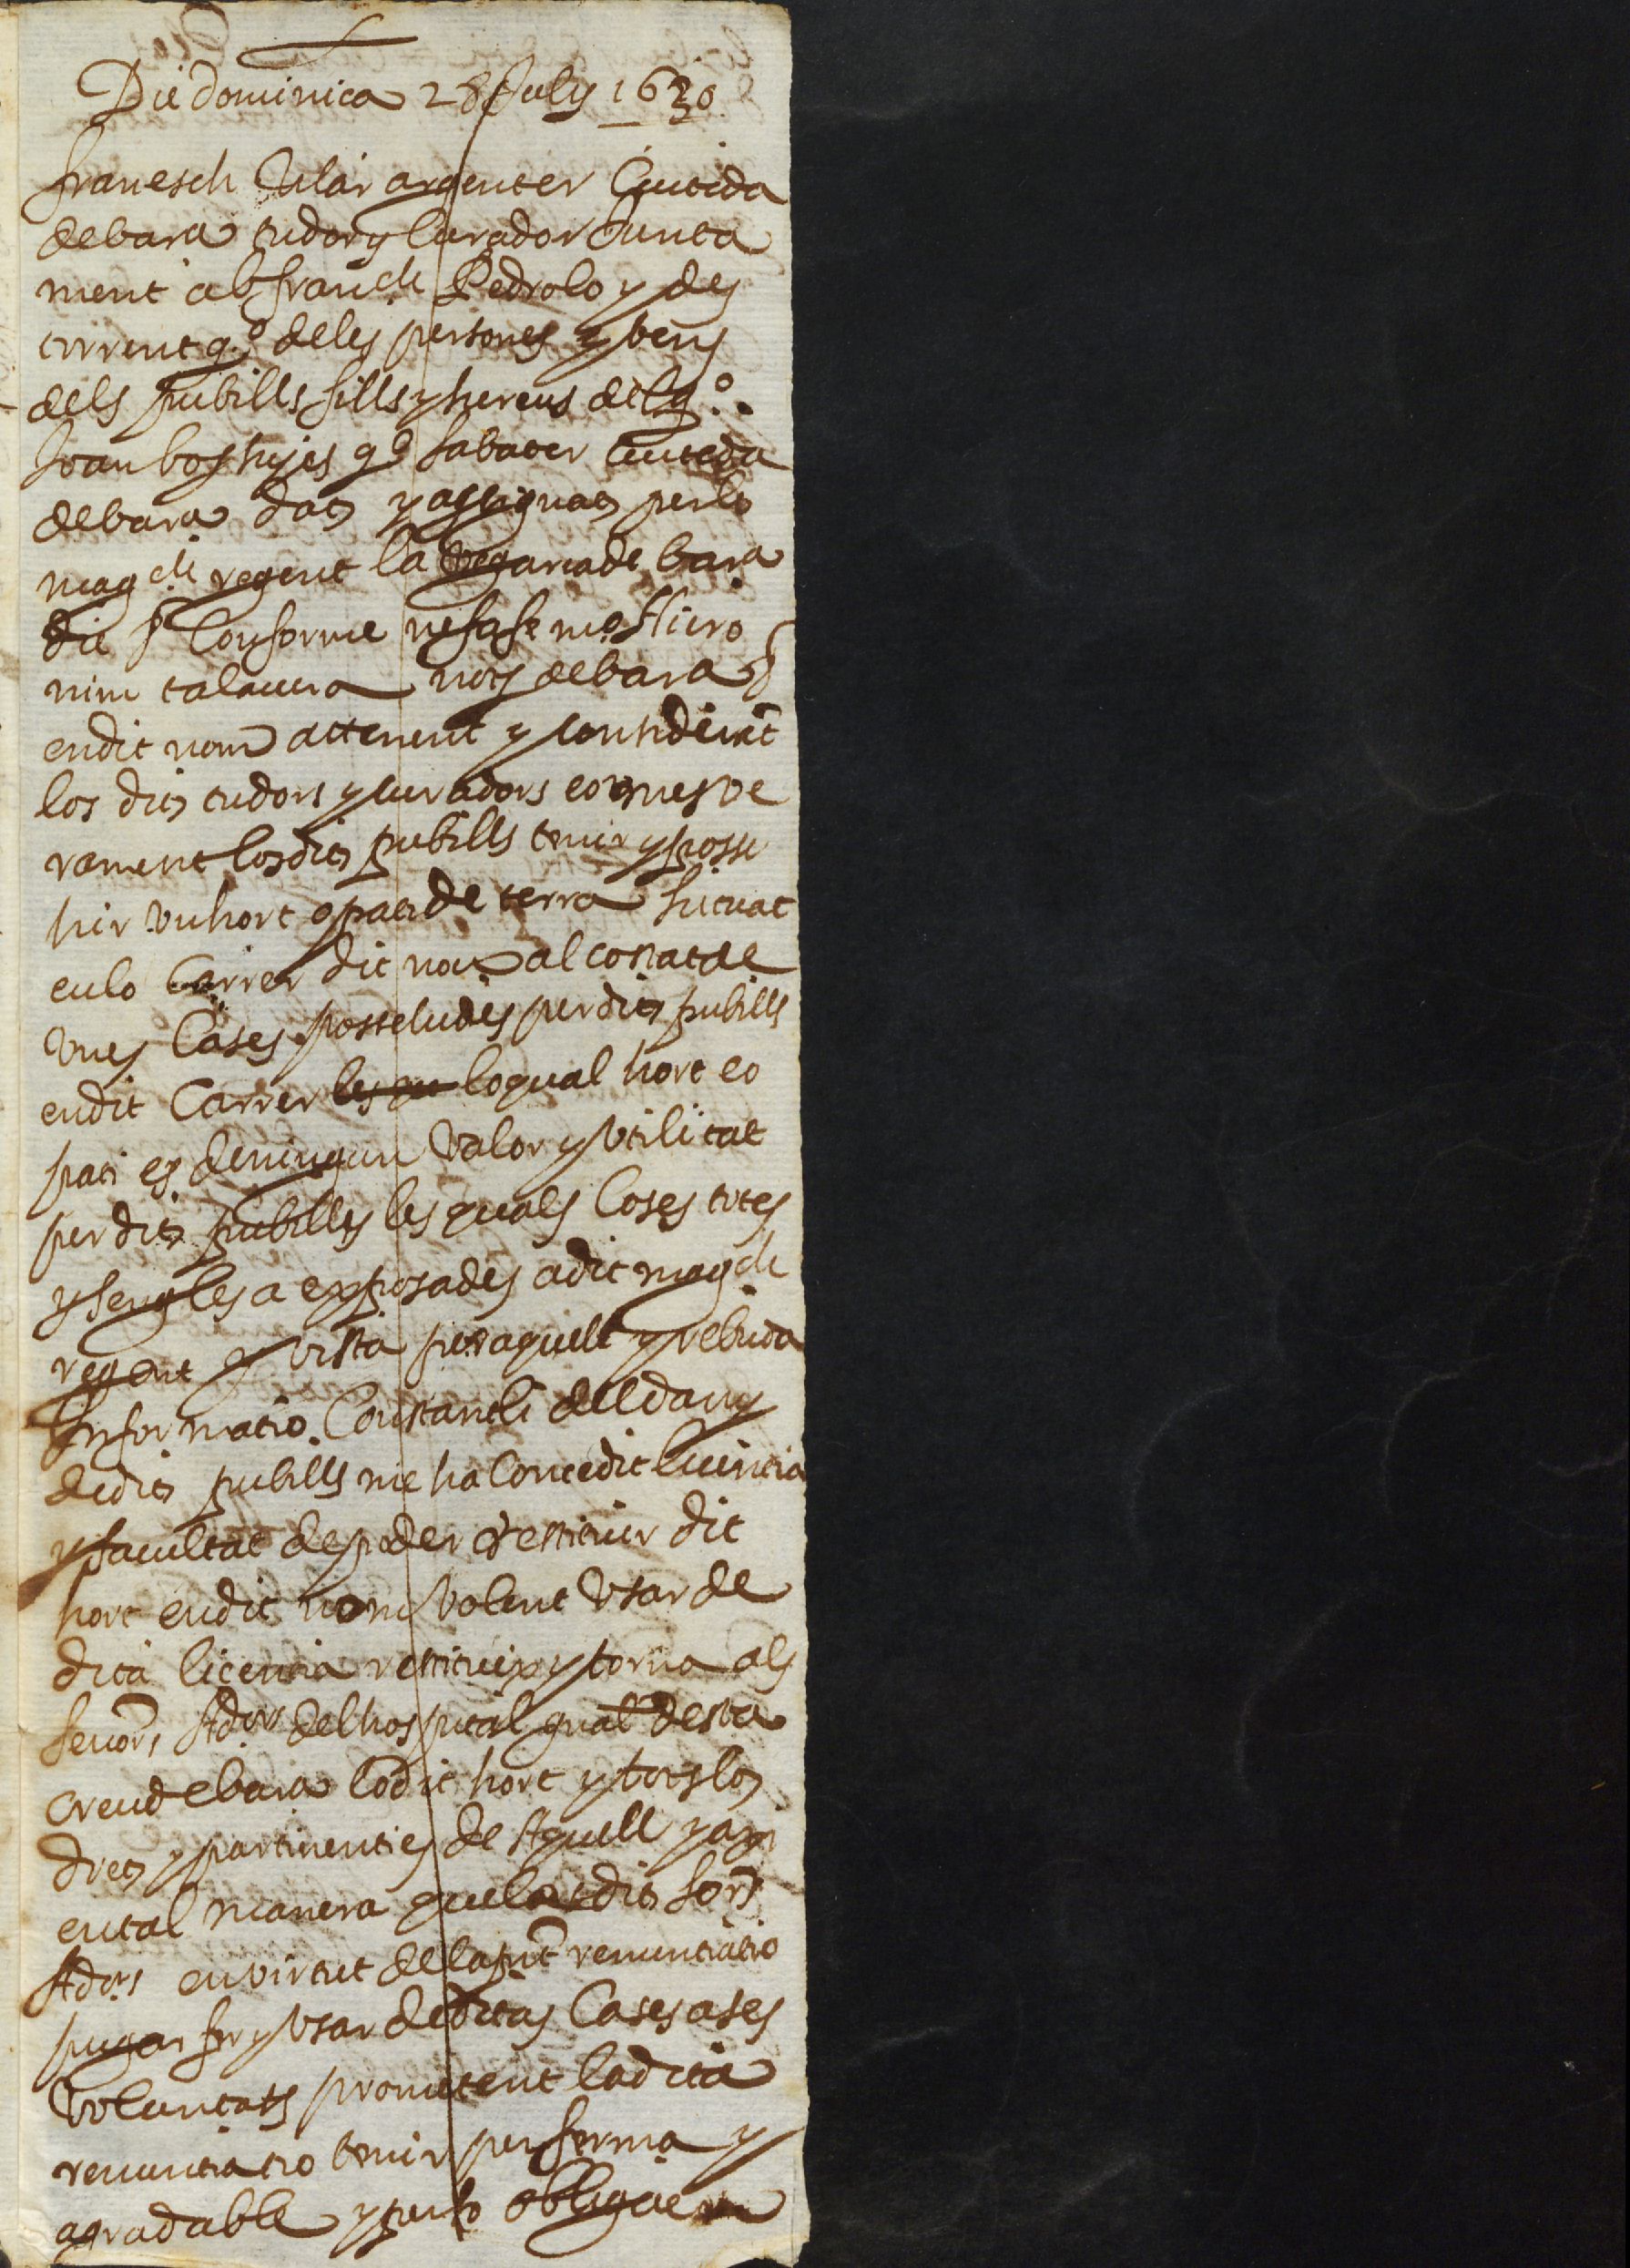 Die dominica 28 Julij 1630
francesch Vilar argenter Ciutida
debarª tudor y Curador Junta
ment ab franch Pedrolo y des
corrent qº deles persones y bens
dels pubills fills y hereus del qº
Joan bos hijes qº sabater Ciuteda
debarª dats y assignats perlo
magch regent la vegariade barª
die pª Conforme nefafe mº Hiero
nim talavera notj debarª
endit nom attenent y considerat
los dits tudors y curadors eo mes ve
rament losdits pubills tenir y posse
hir vn hort o pati de terra situat
enlo Carrer dit nou al costat de
vnes Cases possehides per dits pubills
endit Carrer les qu loqual hort eo
pati es deningun valor y vtilitat
per dits pubills les quals Coses totes
y sengles a exposades adit magch
regent y vista per aquell y rebuda
Informatio Constantli deldany
dedits pubills me ha Concedit llicintia
y facultat de poder restituir dit
hort endit nom volent vsar de
dita licentia restitueix y torna als
senors Adors delhospital gnal desta
creu debarª lodit hort y tots los
drets y partinenties de Aquell y axi
ental manera quelosdits sors
Adors envirtut delapnt renuntiatio
pugan fer y vsar deditas Casesases
Voluntats prometent ladita
renuntiatio tenir per ferma y
agradable y perço obligaem